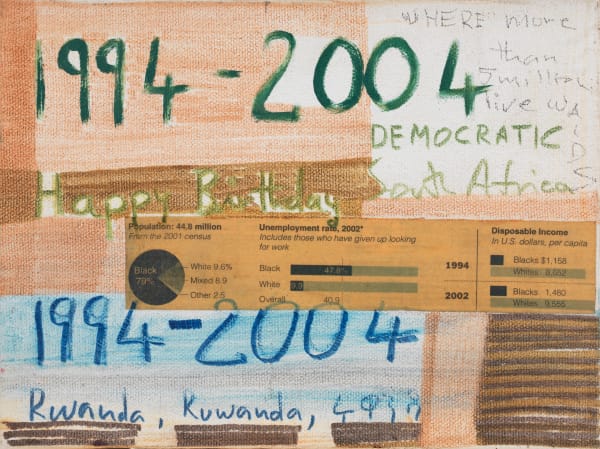 WHERE more
than
5 million
live w
AIDS
1994-2004
DEMOCRATIC
Happy Birthday South Africa
Population: 44.8 million
From the 2001 census
Black
79%
White 9.6%
Mixed 8.9
Other 2.5
Unemployment rate, 2002*
Includes those who have given up looking
for work
Black 47.8%
White 9.9
Overall 40.9
Disposable Income
In U.S. dollars, per capita
1994
Blacks $1,158
Whites 8,652
2002
Blacks 1,480
Whites 9,555
1994-2004
Rwanda, Kuwanda,